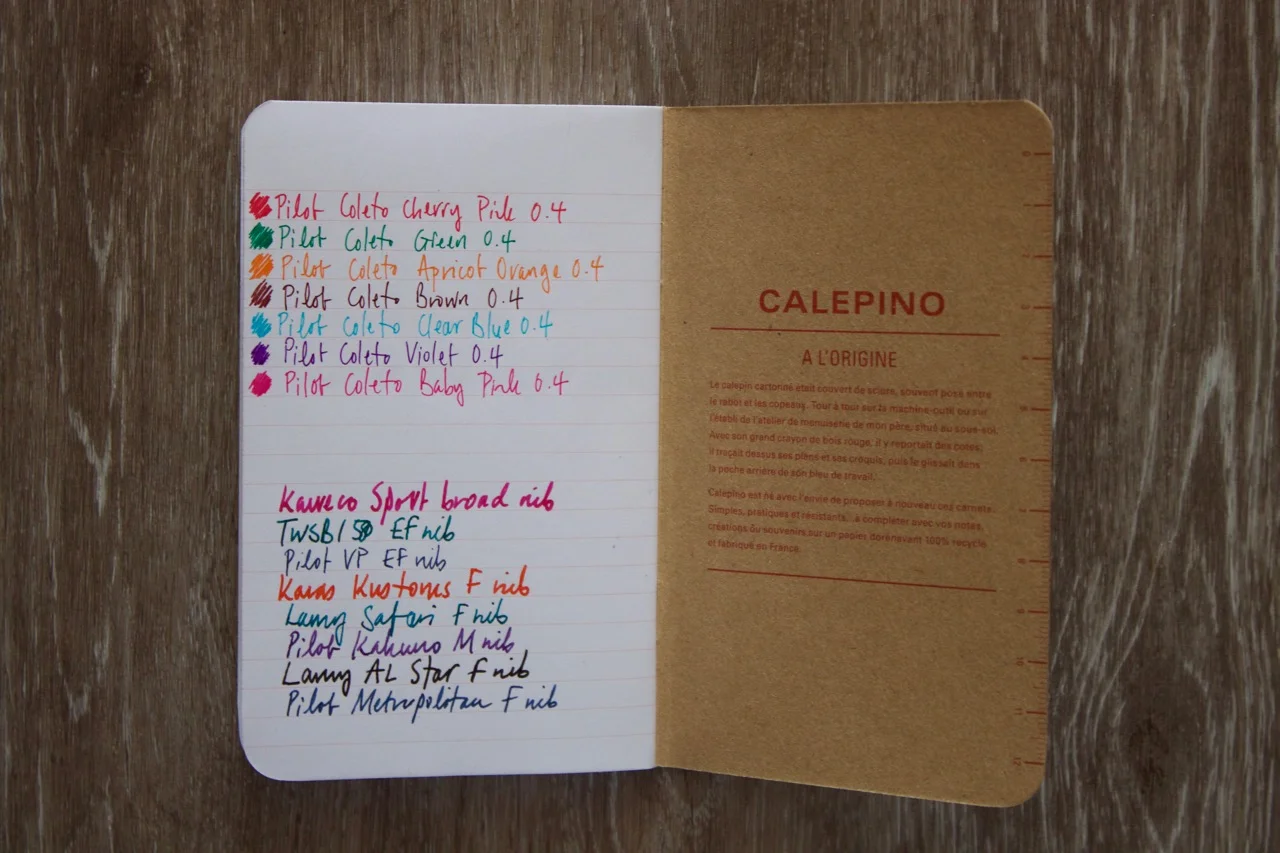 Pilot Coleto Cherry Pink 0.4
Pilot Coleto Green 0.4
Pilot Coleto Apricot Orange 0.4
Pilot Coleto Brown 0.4
Pilot Coleto Clear Blue 0.4
Pilot Coleto Violet 0.4
Pilot Coleto Baby Pink 0.4
Kaweco Sport broad nib
TWSBI EF nib
Pilot VP EF nib
Karas Kustoms F nib
Lamy Safari F nib
Pilot Kakuno M nib
Lamy AL Star F nib
Pilot Metropolitan F nib
CALEPINO
A L'ORIGINE
Le calepin cartonné était couvert de sciure, souvent posé entre
le rabot et les copeaux. Tour à tour sur la machine-outil ou sur
l'établi de l'atelier de menuiserie de mon père, situé au sous-sol.
Avec son grand crayon de bois rouge, il y reportait des cotes,
il traçait dessus ses plans et ses croquis, puis le glissait dans
la poche arrière de son bleu de travail.
Calepino est né avec l'envie de proposer à nouveau ces carnets.
Simples, pratiques et résistants... à compléter avec vos notes,
créations ou souvenirs sur un papier dorénavant 100% recyclé
et fabriqué en France.
0
1
2
3
4
5
6
7
8
9
10
11
12